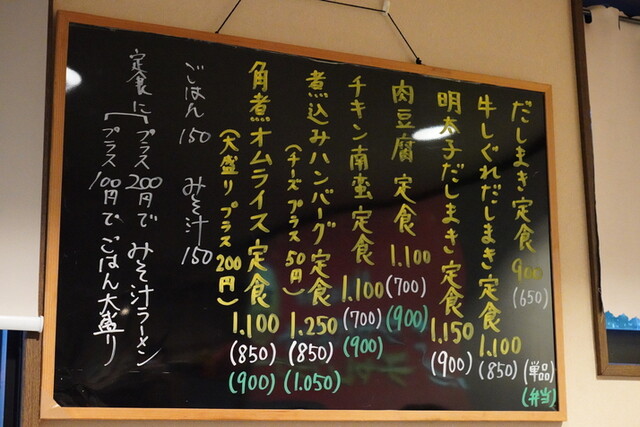 だしまき定食 900 (650)
牛しぐれだしまき定食 1.100 (850) (単品) (弁当)
明太子だしまき定食 1.150 (900)
肉豆腐定食 1.100 (700) (900)
チキン南蛮定食 1.100 (700) (900)
煮込みハンバーグ定食 1.250 (850) (1.050)
(チーズプラス50円)
角煮オムライス定食 1.100 (850) (900)
(大盛りプラス200円)
ごはん150 みそ汁150
定食に プラス200円でみそ汁ラーメン
プラス100円でごはん大盛り